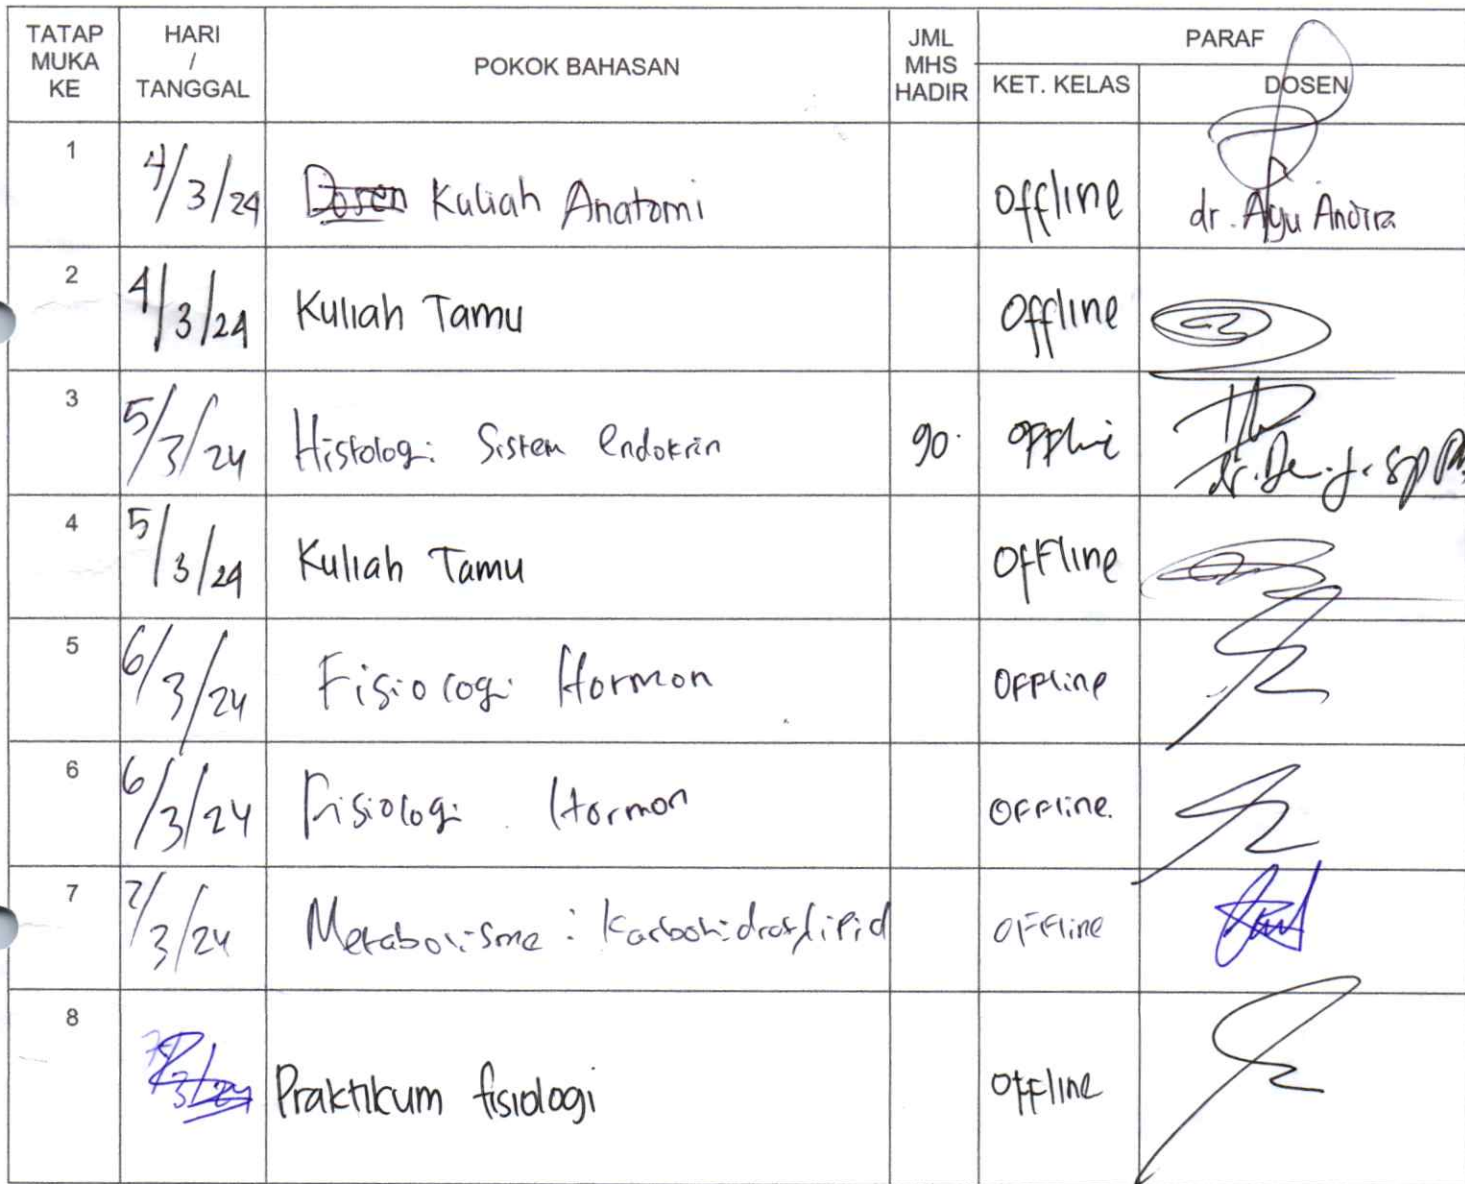 TATAP MUKA KE HARI / TANGGAL POKOK BAHASAN JML MHS HADIR PARAF
KET. KELAS DOSEN
1 4/3/24 Dosen Kuliah Anatomi Offline dr. Ayu Andira
2 4/3/24 Kuliah Tamu Offline
3 5/3/24 Histologi Sistem Endokrin 90 offline
4 5/3/24 Kuliah Tamu Offline
5 6/3/24 Fisiologi Hormon Offline
6 6/3/24 Fisiologi Hormon Offline.
7 7/3/24 Metabolisme : Karbohidrat, lipid Offline
8 Praktikum fisiologi Offline